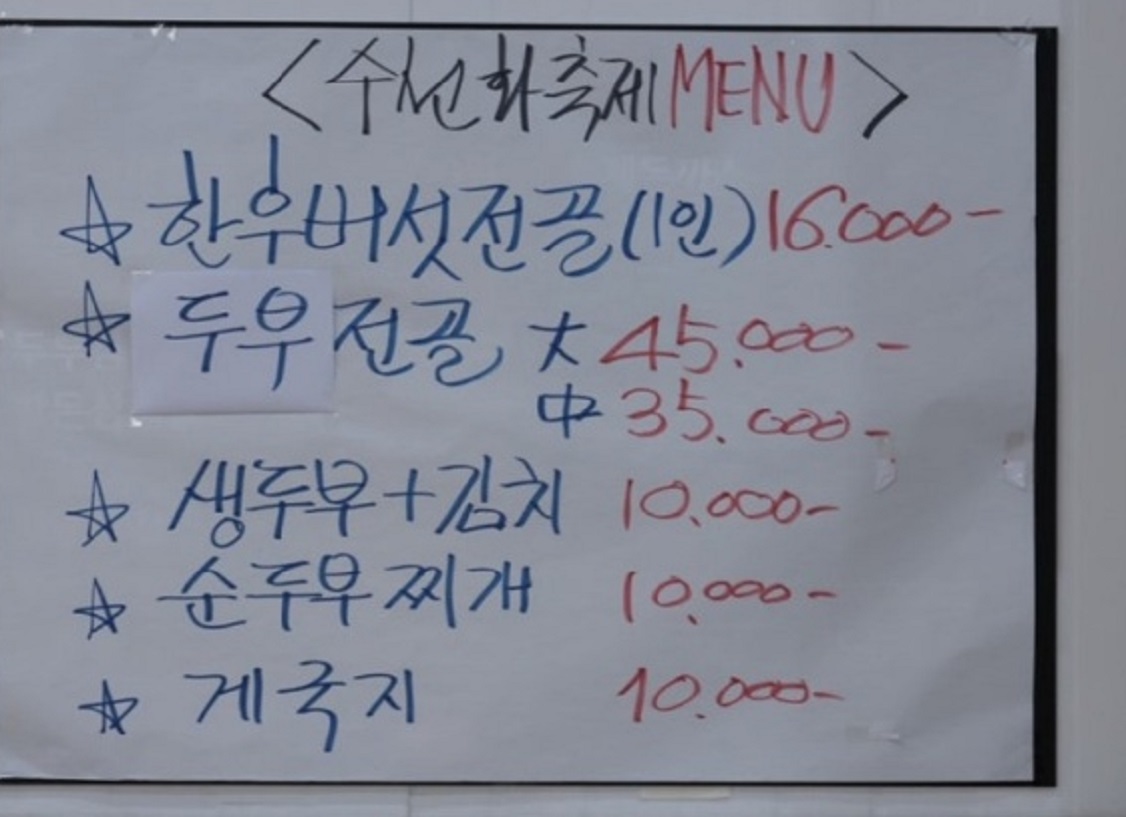 <수선화축제 MENU>
☆ 한우버섯전골(1인) 16.000-
☆ 두부전골 大 45.000-
中 35.000-
☆ 생두부+김치 10.000-
☆ 순두부찌개 10.000-
☆ 게국지 10.000-